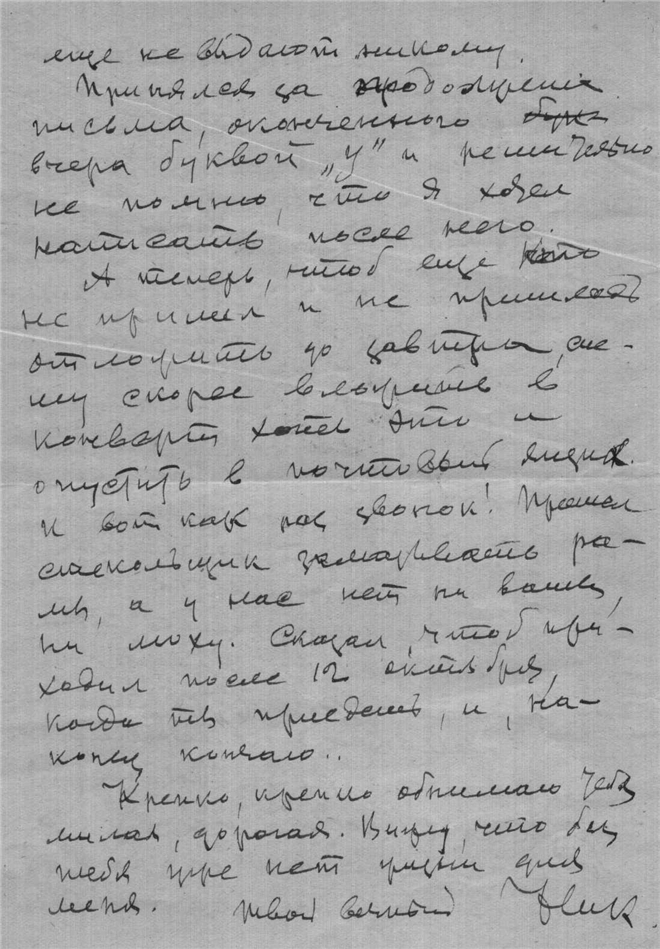 еще не выдают никому.
Принялся за продолжение
письма, оконченного
вчера буквой „У" и решительно
не помню, что я хотел
написать после него.
А теперь, чтоб еще кто
не пришел и не пришлось
отложить до завтра, спе-
шу скорее вложить в
конверт хотя это и
опустить в почтовый ящик.
И вот как раз звонок! Пришел
стекольщик замазывать ра-
мы, а у нас нет ни ваты,
ни моху. Сказал, чтоб при-
ходил после 12 октября,
когда ты приедешь, и, на-
конец кончаю..
Крепко, крепко обнимаю тебя
милая, дорогая. Вижу, что без
тебя уже нет жизни для
меня. Твой вечный